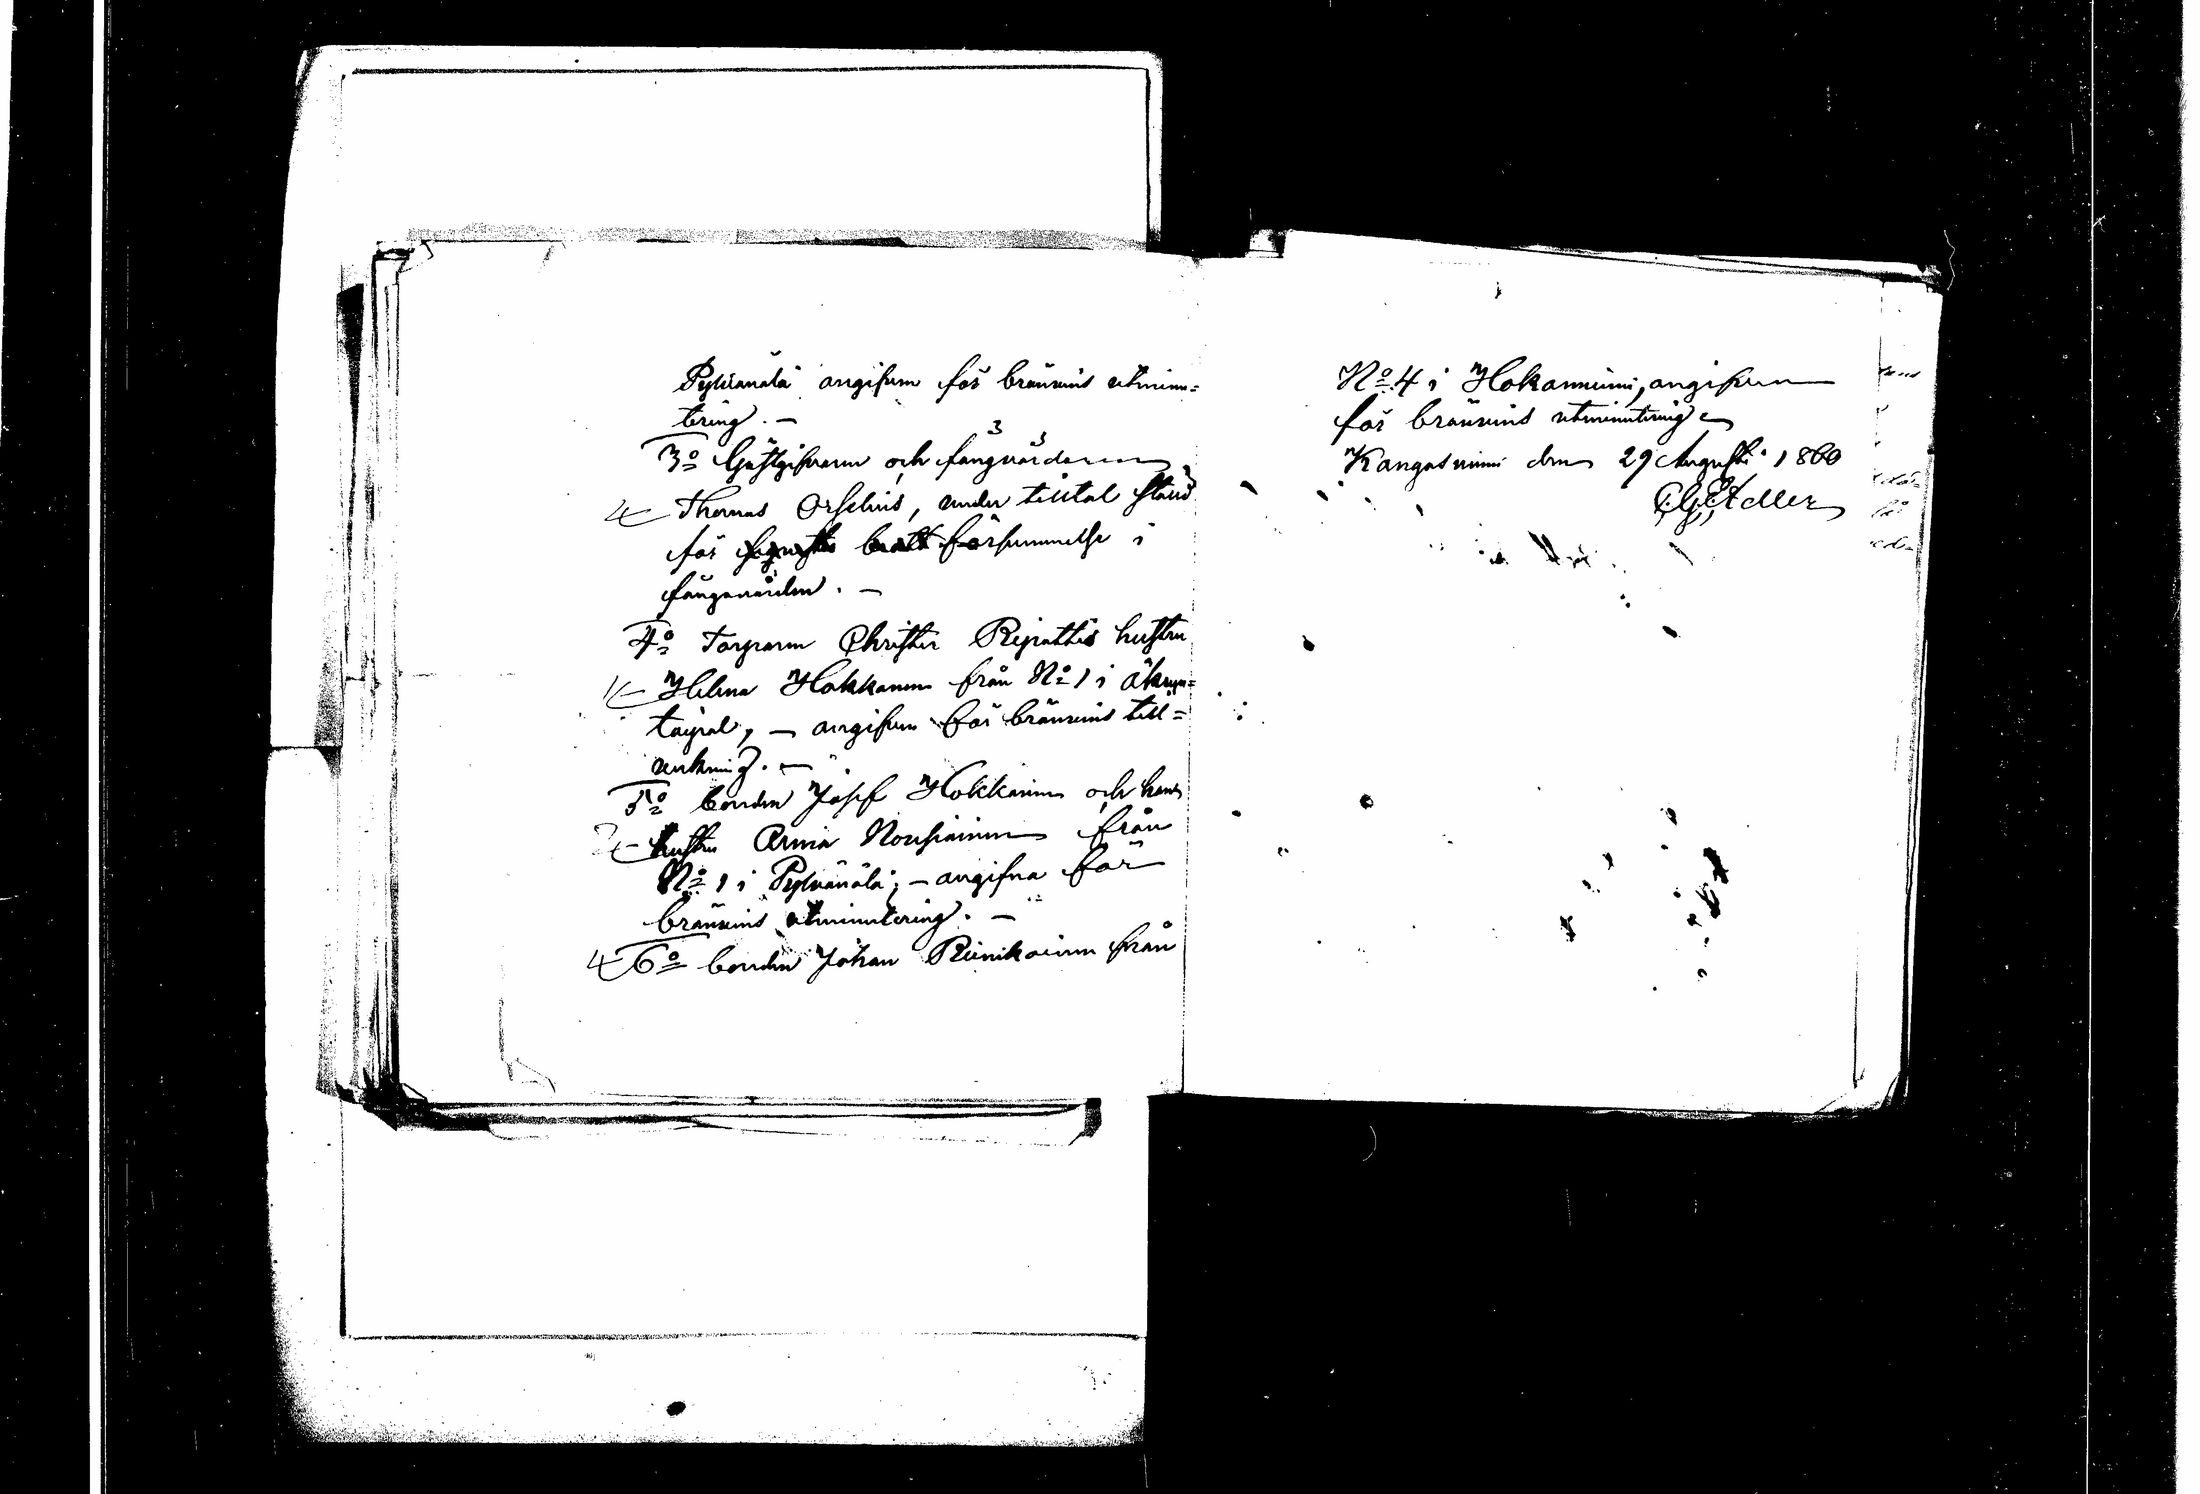 Pylvänälä angifven för bränvins utminu=
tering. —
3o Gästgifvaren och fångvårdaren
4 Thomas Orselius, under tilltal ställd
för försummelse i
fångvården. —
4o Torparen Christer Repattis hustru
Helena Hokkanen från No 1 i
angifven för bränvins till=
verkning. —
5o bonden Josef Hokkanen och hans
2 hustru Anna Nousiainen från
No 1 i Pylvänälä; — angifna för
bränvins utminutering. —
4 6o bonden Johan Reinikainen från
No 4 i Hokanniemi, angifven
för bränvins utminutering
Kangasniemi den 29 Augusti 1860